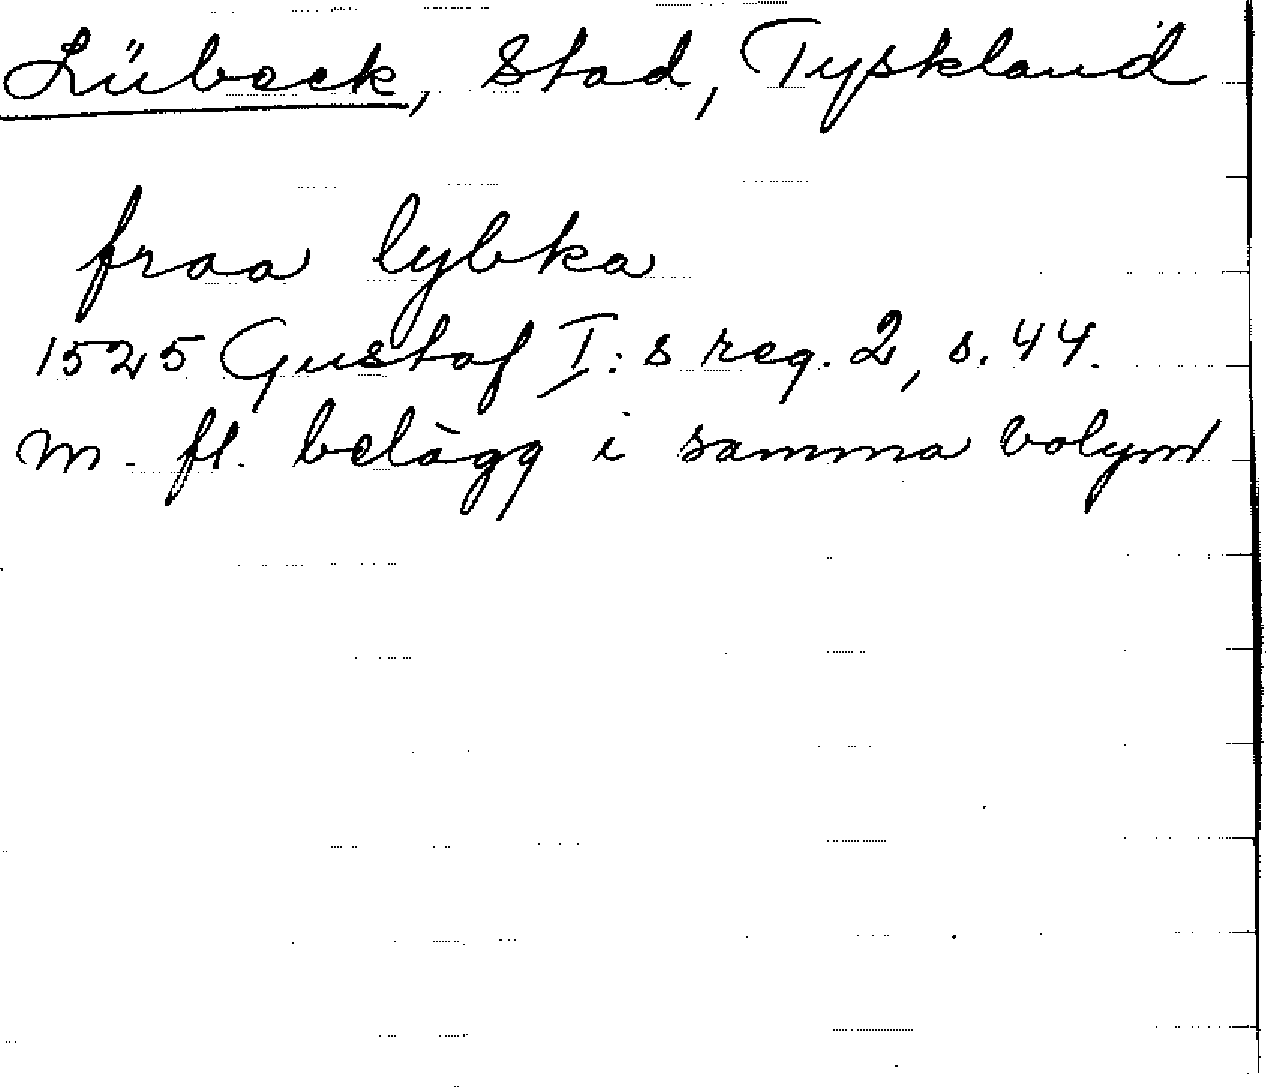 Lübeck, Stad, Tyskland
fraa lybka
1525 Gustaf I:s reg. 2, s. 44.
m. fl. belägg i samma volym